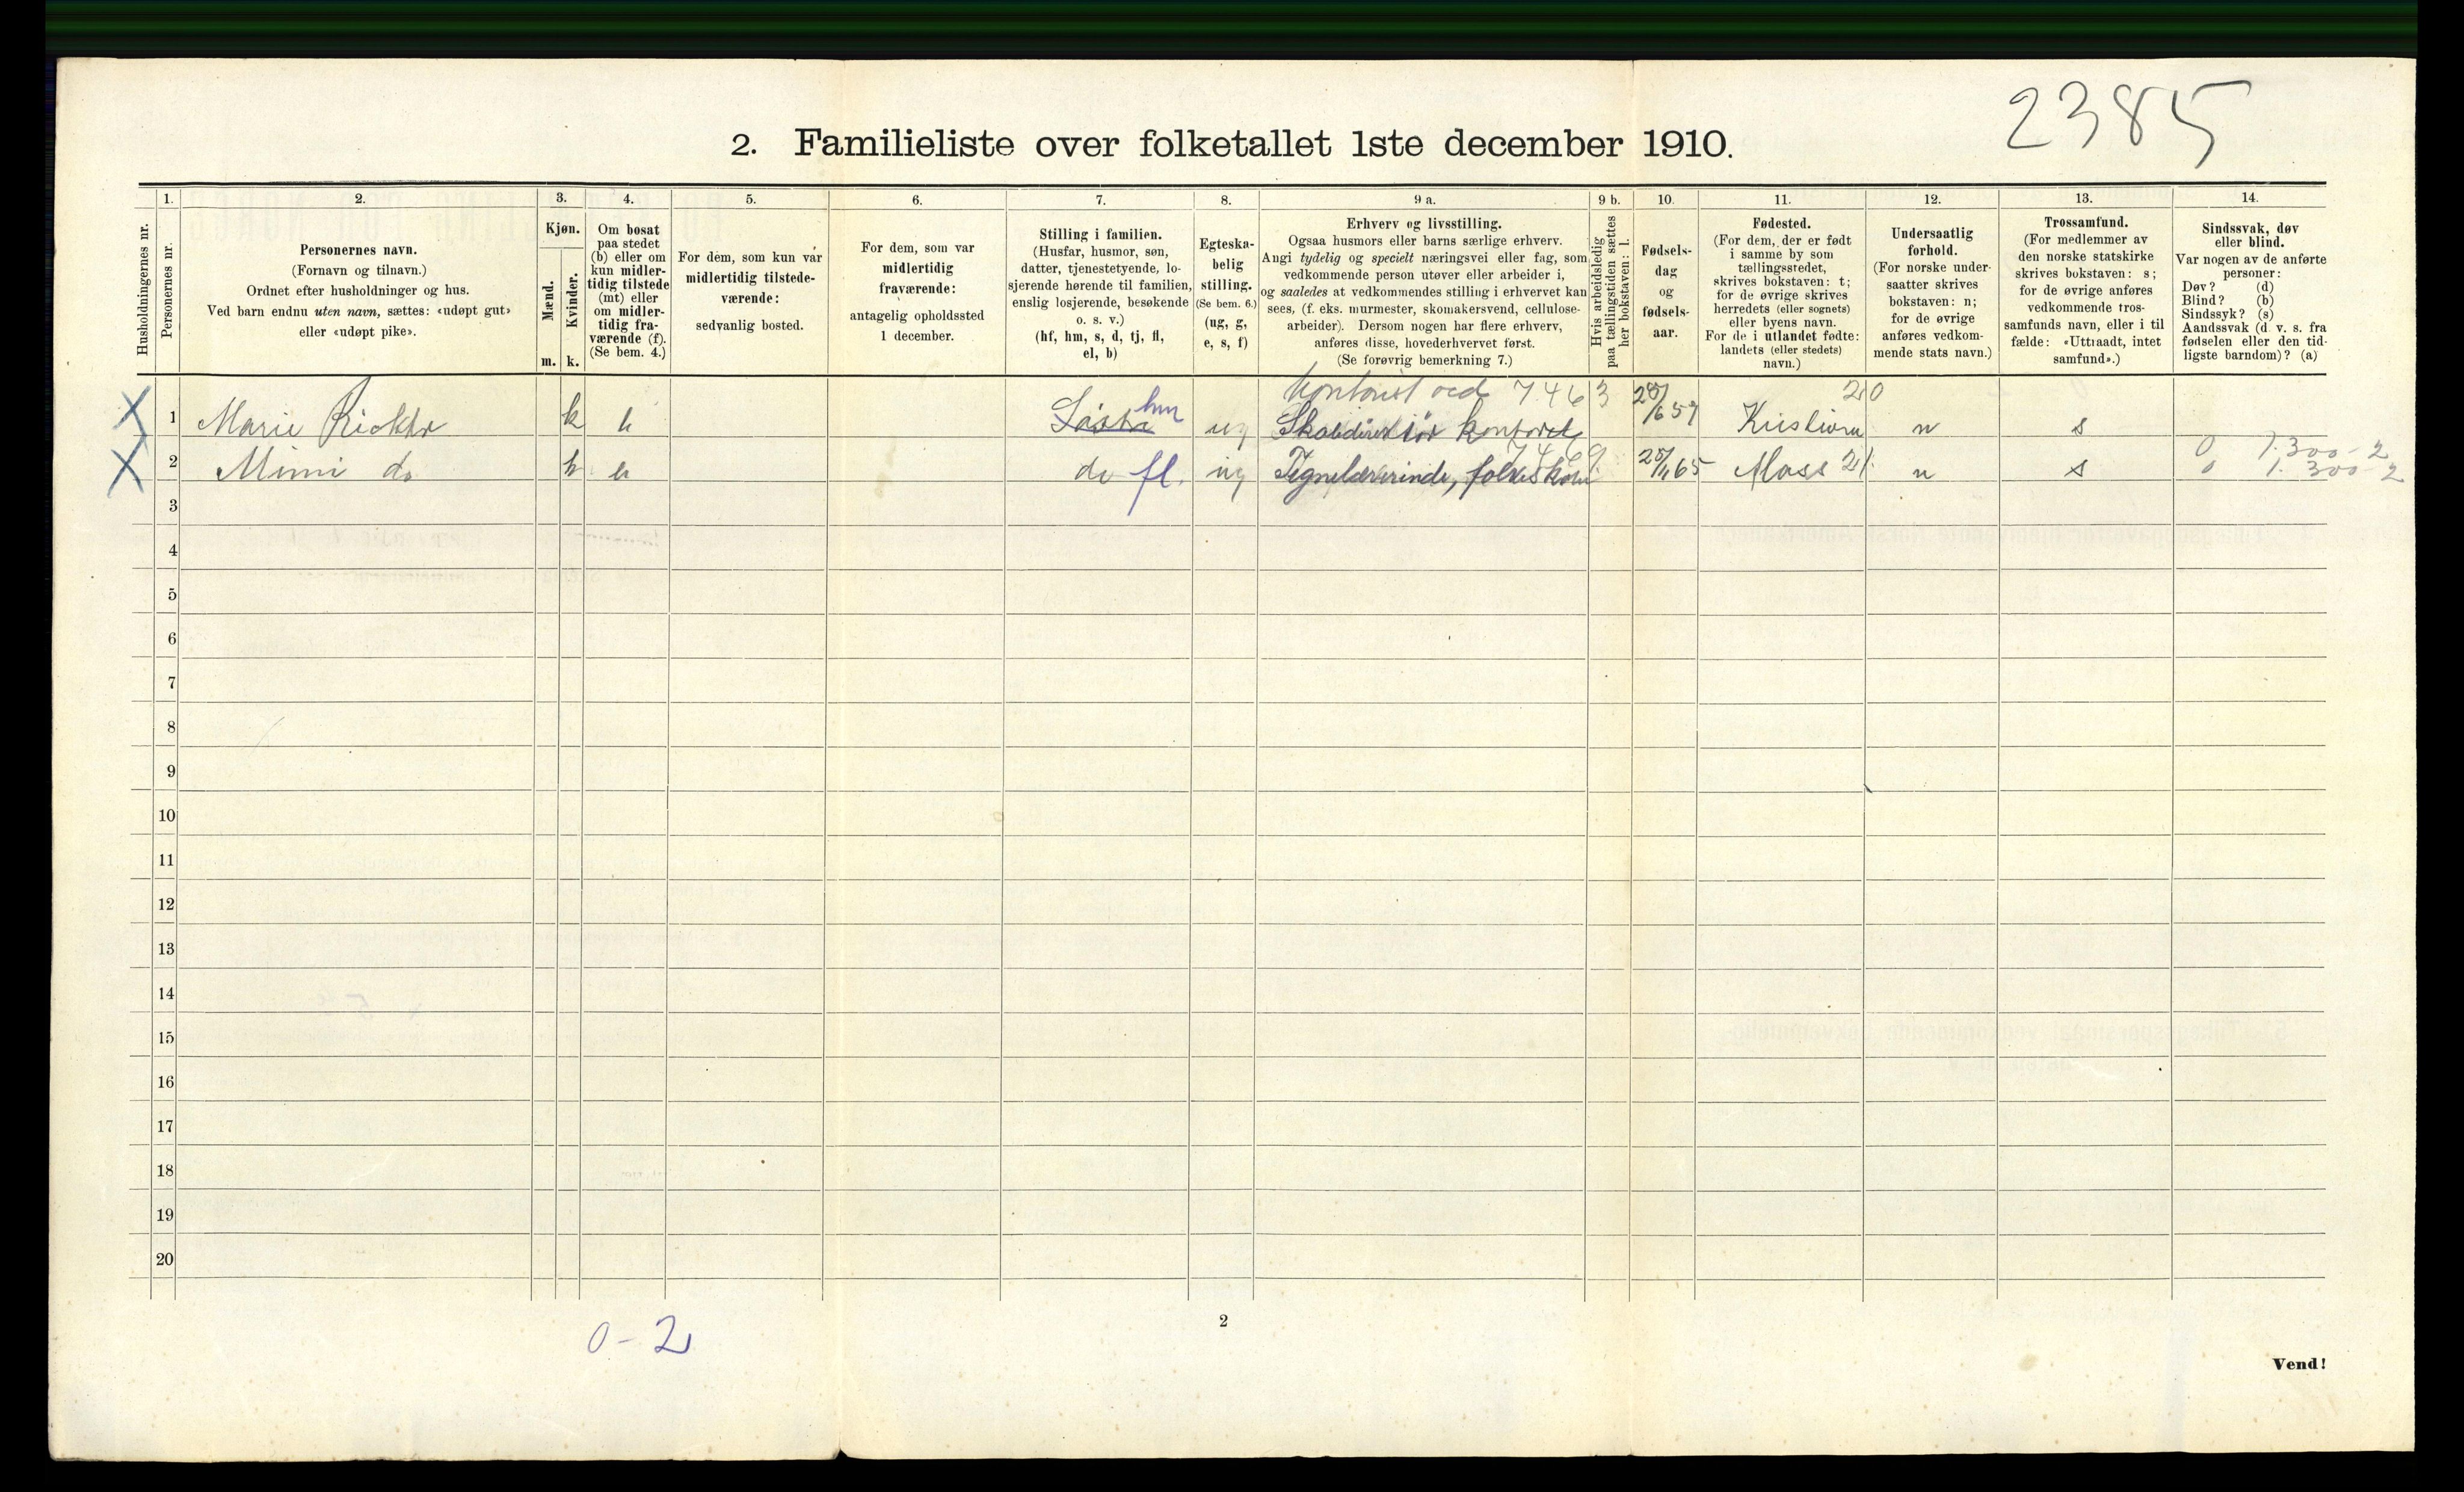 2385
2. Familieliste over folketallet 1ste december 1910.
1. 2. 3. 4. 5. 6. 7. 8. 9 a. 9 b. 10. 11. 12. 13. 14.
Husholdningernes nr.
Personernes nr.
Personernes navn.
(Fornavn og tilnavn.)
Ordnet efter husholdninger og hus.
Ved barn endnu uten navn, sættes: «udøpt gut»
eller «udøpt pike».
Kjøn.
Mænd.
m.
Kvinder.
k.
Om bosat
paa stedet
(b) eller om
kun midler-
tidig tilstede
(mt) eller
om midler-
tidig fra-
værende (f).
(Se bem. 4.)
For dem, som kun var
midlertidig tilstede-
værende:
sedvanlig bosted.
For dem, som var
midlertidig
fraværende:
antagelig opholdssted
1 december.
Stilling i familien.
(Husfar, husmor, søn,
datter, tjenestetyende, lo-
sjerende hørende til familien,
enslig losjerende, besøkende
o. s. v.)
(hf, hm, s, d, tj, fl,
el, b)
Egteska-
belig
stilling.
(Se bem. 6.)
(ug, g,
e, s, f)
Erhverv og livsstilling.
Ogsaa husmors eller barns særlige erhverv.
Angi tydelig og specielt næringsvei eller fag, som
vedkommende person utøver eller arbeider i,
og saaledes at vedkommendes stilling i erhvervet kan
sees, (f. eks. murmester, skomakersvend, cellulose-
arbeider). Dersom nogen har flere erhverv,
anføres disse, hovederhvervet først.
(Se forøvrig bemerkning 7.)
Hvis arbeidsledig
paa tællingstiden sættes
her bokstaven: l.
Fødsels-
dag
og
fødsels-
aar.
Fødested.
(For dem, der er født
i samme by som
tællingsstedet,
skrives bokstaven: t;
for de øvrige skrives
herredets (eller sognets)
eller byens navn.
For de i utlandet fødte:
landets (eller stedets)
navn.)
Undersaatlig
forhold.
(For norske under-
saatter skrives
bokstaven: n;
for de øvrige
anføres vedkom-
mende stats navn.)
Trossamfund.
(For medlemmer av
den norske statskirke
skrives bokstaven: s;
for de øvrige anføres
vedkommende tros-
samfunds navn, eller i til
fælde: «Uttraadt, intet
samfund».)
Sindssvak, døv
eller blind.
Var nogen av de anførte
personer:
Døv? (d)
Blind? (b)
Sindssyk? (s)
Aandssvak (d. v. s. fra
fødselen eller den tid-
ligste barndom)? (a)
kontorist ved 7463 20
X 1 Marie Richter k b hm ug Skoledirektør kontoret 57 n s
0 1.300-2
X 2 Mimi do k b do fl. ug Tegnelærerinde, folkeskole 65 Moss 21. n s 0 1.300-2
3
4
5
6
7
8
9
10
11
12
13
14
15
16
17
18
19
20
0-2
2
Vend!